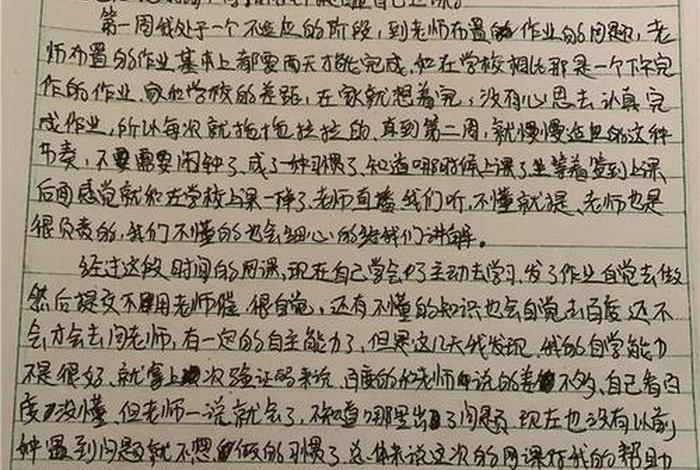 第一周我处于一个不适应的阶段，到老师布置的作业的问题，老
师布置的作业基本上都要两天才能完成，和在学校相比那是一个下午完
作的作业，家和学校的差距，在家就想着完，没有心思去认真完
成作业，所以每次就拖拖拉拉的，直到第二周，就慢慢适应的这种
节奏，不要需要闹钟了，成了一种习惯了，知道哪时候上课了坐等着签到上课，
后面感觉就和在学校上课一样了，老师直播我们听，不懂就提、老师也是
很负责的，我们不懂的也会细心的给我们讲解。
经过这段时间的网课，现在自己学会了主动去学习，发了作业自觉去做
然后提交不用老师催，很自觉，还有不懂的知识也会自觉去百度，还不
会才会去问老师，有一定的自主能力了，但是这几天我发现，我的自学能力
不是很好，就拿上次验证码来说，百度的和老师说的差不多，自己看百
度没懂，但老师一说就会了，不知道哪里出了问题，现在也没有以前
种遇到问题就不想做的习惯了，总体来说这次的网课给我的帮助